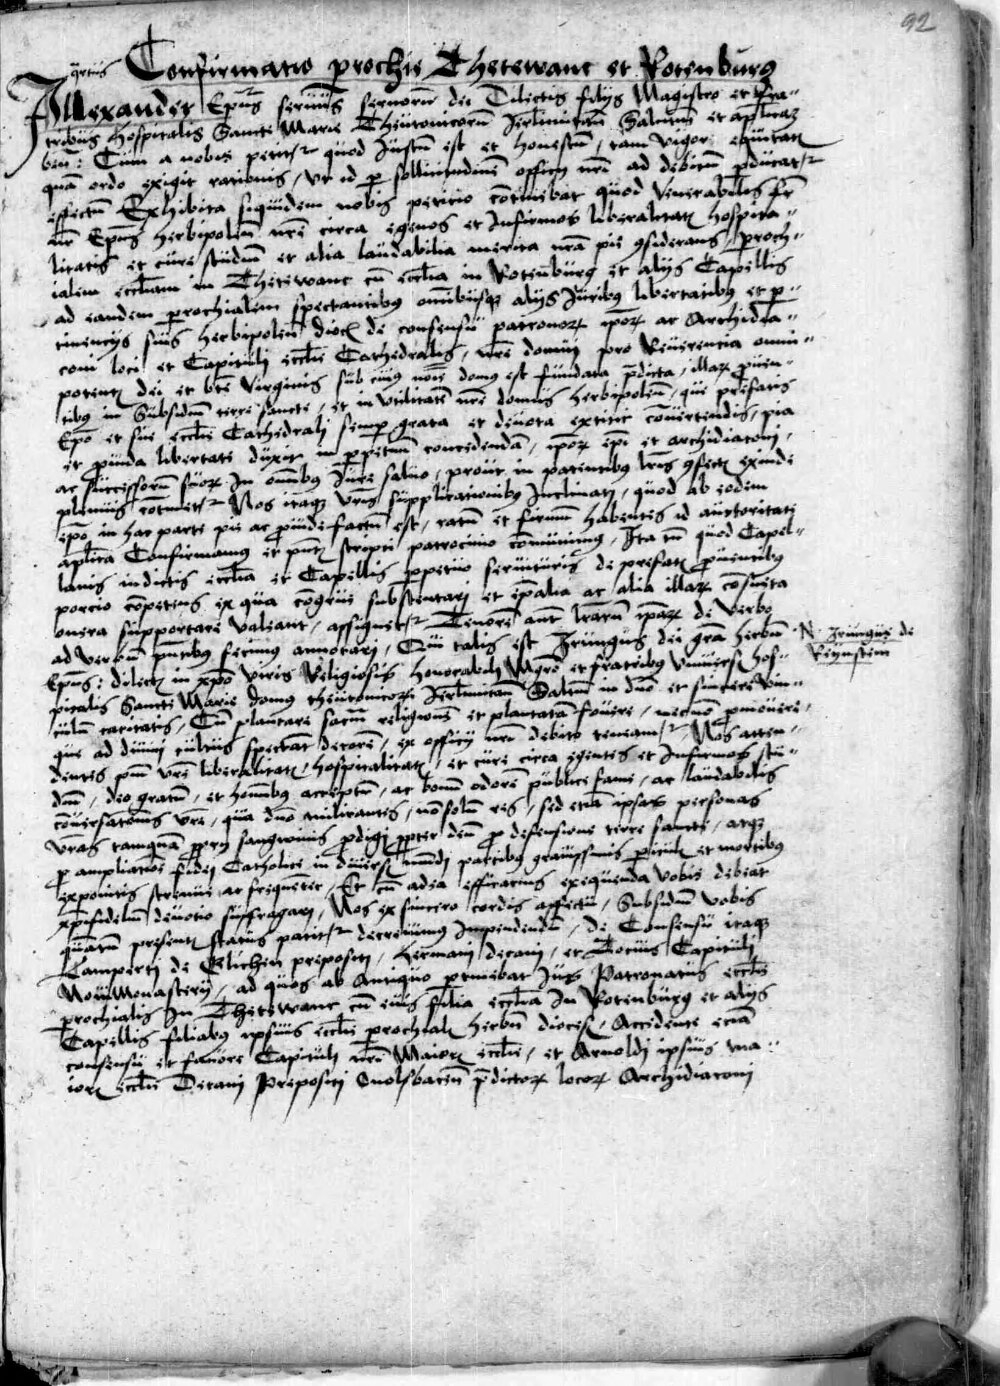 92
qrtus Confirmatio prochie Thetewanc et Rotenburg
Allexander Epus seruus seruorum dei Dilectis filijs Magistro et fra-
tribus hospitalis Sancte Marie Theutonicorum Jerlimitan Salutem et aplicam
ben: Cum a nobis petitur quod Justum est et honestum, tam vigor equitatis
quam ordo exigit rationis, vt id p sollicitudinem officij nri ad debitum pducatur
effectum Exhibita siquidem nobis petitio continebat quod venerabilis fr
nr Epus herbipolen vre circa egenos et Infirmos liberalitatis hospita-
litatis et cure studium et alia laudabilia merita vra pie considerans, proch-
ialem ecclesiam in Thetewanc cum ecclia in Rotenburg et alijs Capellis
ad eandem prochialem spectantibus omnibusque alijs Juribus libertatibus et p-
tinencijs suis herbipolen dioc de consensu patronorum ipsorum ac Archidia-
coni loci et Capituli ecclie Cathedralis, vre domui pro Reuerentia omni-
potentis dei et bte Virginis sub cuius noie domus est fundata pdicta, illarum prouen-
tibus in Subsidium terre sancte, et in vtilitatem vre domus herbipolen, que prefatis
Epo et sue ecclie Cathedrali semper grata et deuota extitit conuertendis, pia
et prouida libertate duxit in ppetuum concedendam, ipsorum epi et archidiaconi,
ac successorum suorum In omnibus Jure saluo, prout in patentibus lris confectis exinde
plenius continetur Nos itaque vris supplicationibus Inclinati, quod ab eodem
epo in hac parte pie ac prouide factum est, ratum et firmum habentes id auctoritate
aplica Confirmamus et pntis scripti patrocinio communimus, Ita tn quod Capel-
lanis in dictis ecclia et Capellis perpetuo seruituris de prefatis prouentibus
porcio competens ex qua congrue sustentari et epalia ac alia illarum consueta
onera supportare valeant, assignetur Tenorem aut lrarum ipsarum de verbo
ad verbum pntibus fecimus annotari, Qui talis est Iringus dei gra herbn
N. Iringus de
Reynstein
Epus: dilectis in xpo viris Religiosis honorabili Mgro et fratribus vniuersis hos-
pitalis Sancte Marie domus theutonicorum Jerlimitan Salutem in dno et sincere vin-
culum caritatis, Cum plantare sacram religionem et plantatam fouere, necnon promouere,
que ad diuini cultus spectant decorem, ex officij nri debito teneamur Nos atten-
dentes pium vre liberalitatis, hospitalitatis, et cure circa egentes et Infirmos stu-
dium, deo gratum, et hominibus acceptum, ac bonum odorem publice fame, ac laudabilis
conuersationis vre, qua dno militantes, non solum res, sed etia ipsas personas
vras tamquam proprij sanguinis prodigi propter deum pro defensione terre sancte, atque
pro ampliatione fidei Catholice in diuersis mundi partibus grauissimis periculis et mortibus
exponitis strenue ac frequenter, Et cum ad ea efficacius exequenda vobis debeat
xpifidelium deuotio suffragari, Nos ex sincero cordis affectu, Subsidium vobis
quantum presentis status patitur decreuimus Impendendum, De Consensu itaque
Lamperti de Glichen prepositi, Hermani decani, et Tocius Capituli
Noui Monasterij, ad quos ab Antiquo ptinebat Jus Patronatus ecclie
prochialis In Thetewanc cum eius filia ecclia In Rotenburg et alijs
Capellis filiabus ipsius ecclie prochialis herbn diocesis, Accidente eciam
consensu et fauore Capituli nri Maioris ecclie, et Arnoldi ipsius ma-
ioris ecclie Decani Prepositi Onolsbacen pdictorum locorum Archidiaconi